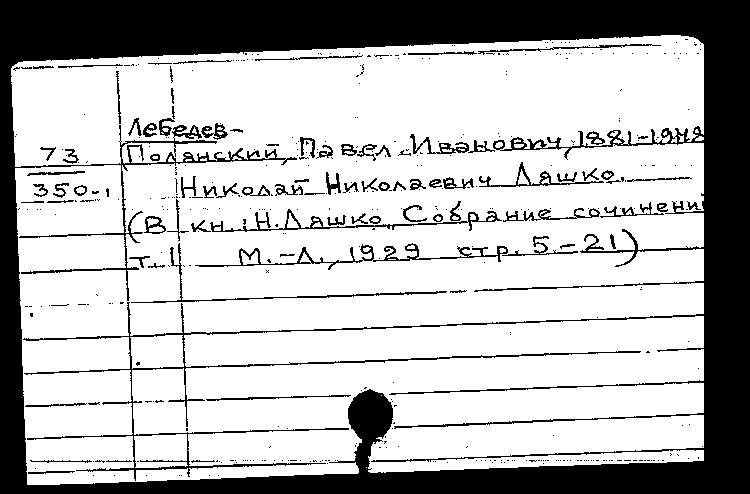 Лебедев-
73 Полянский, Павел Иванович, 1881-1948
350-1 Николай Николаевич Ляшко.
(В кн.: Н. Ляшко, Собрание сочинений
т. 1 М.-Л., 1929 стр. 5-21)